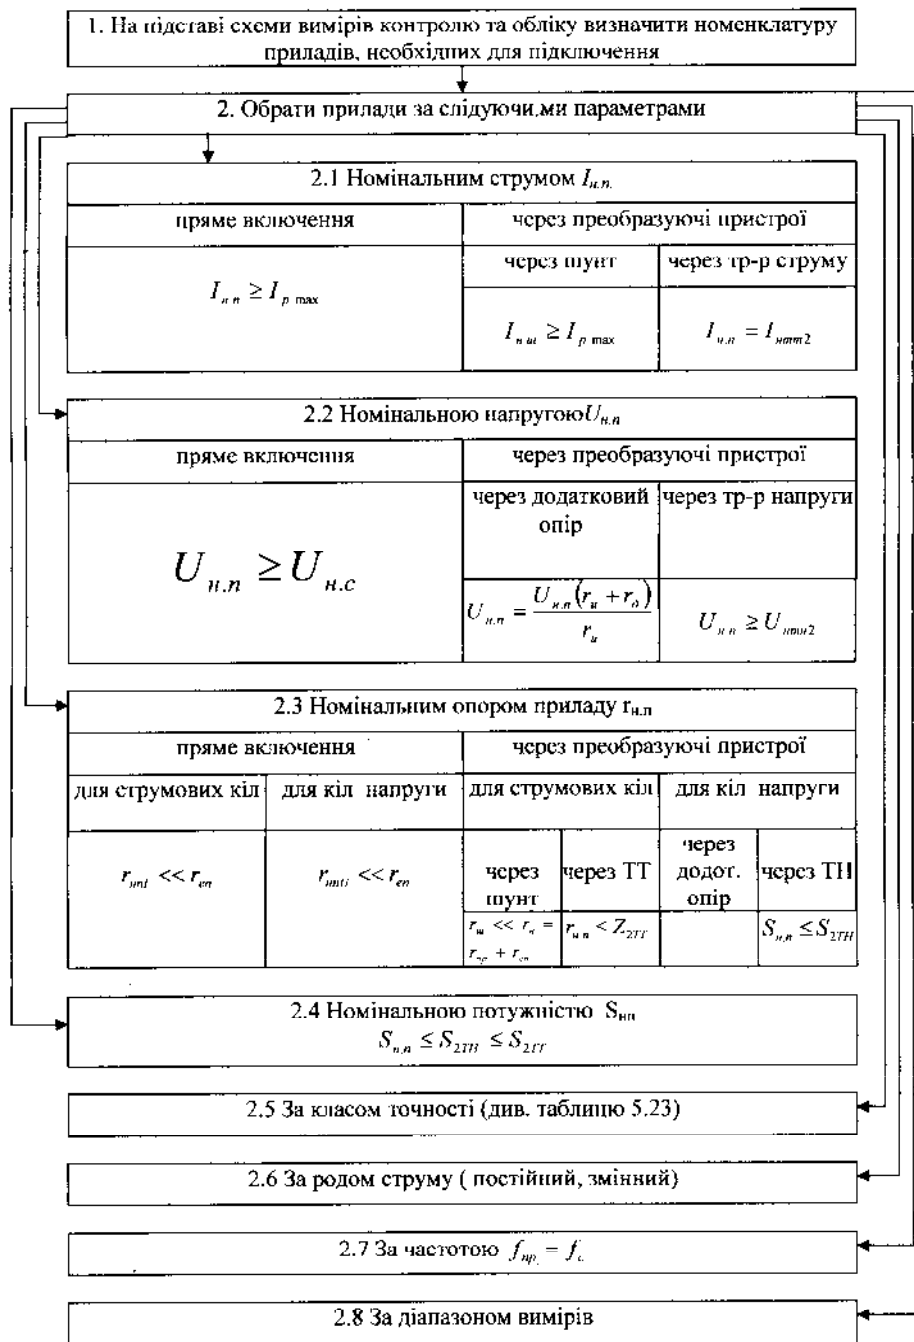 1. На підставі схеми вимірів контролю та обліку визначити номенклатуру
приладів, необхідних для підключення
2. Обрати прилади за слідуючими параметрами
2.1 Номінальним струмом I н.п.
пряме включення
через преобразуючі пристрої
через шунт
через тр-р струму
I н.п ≥ I р max
I н ш ≥ I р max
I н.п = I нтт2
2.2 Номінальною напругою U н.п
пряме включення
через преобразуючі пристрої
через додатковий
опір
через тр-р напруги
U н.п ≥ U н.с
U н.п = U н.п (r и + r д) / r и
U н.п ≥ U нтн2
2.3 Номінальним опором приладу r н.п
пряме включення
через преобразуючі пристрої
для струмових кіл
для кіл напруги
для струмових кіл
для кіл напруги
r нпі << r еп
<< r еп
через
шунт
через ТТ
через
додот.
опір
через ТН
r ш << r н =
r пр + r еп
r н.п < Z 2ТТ
S н.п ≤ S 2ТН
2.4 Номінальною потужністю S нп
S н.п ≤ S 2ТН ≤ S 2ТТ
2.5 За класом точності (див. таблицю 5.23)
2.6 За родом струму ( постійний, змінний)
2.7 За частотою f пр. = f с
2.8 За діапазоном вимірів